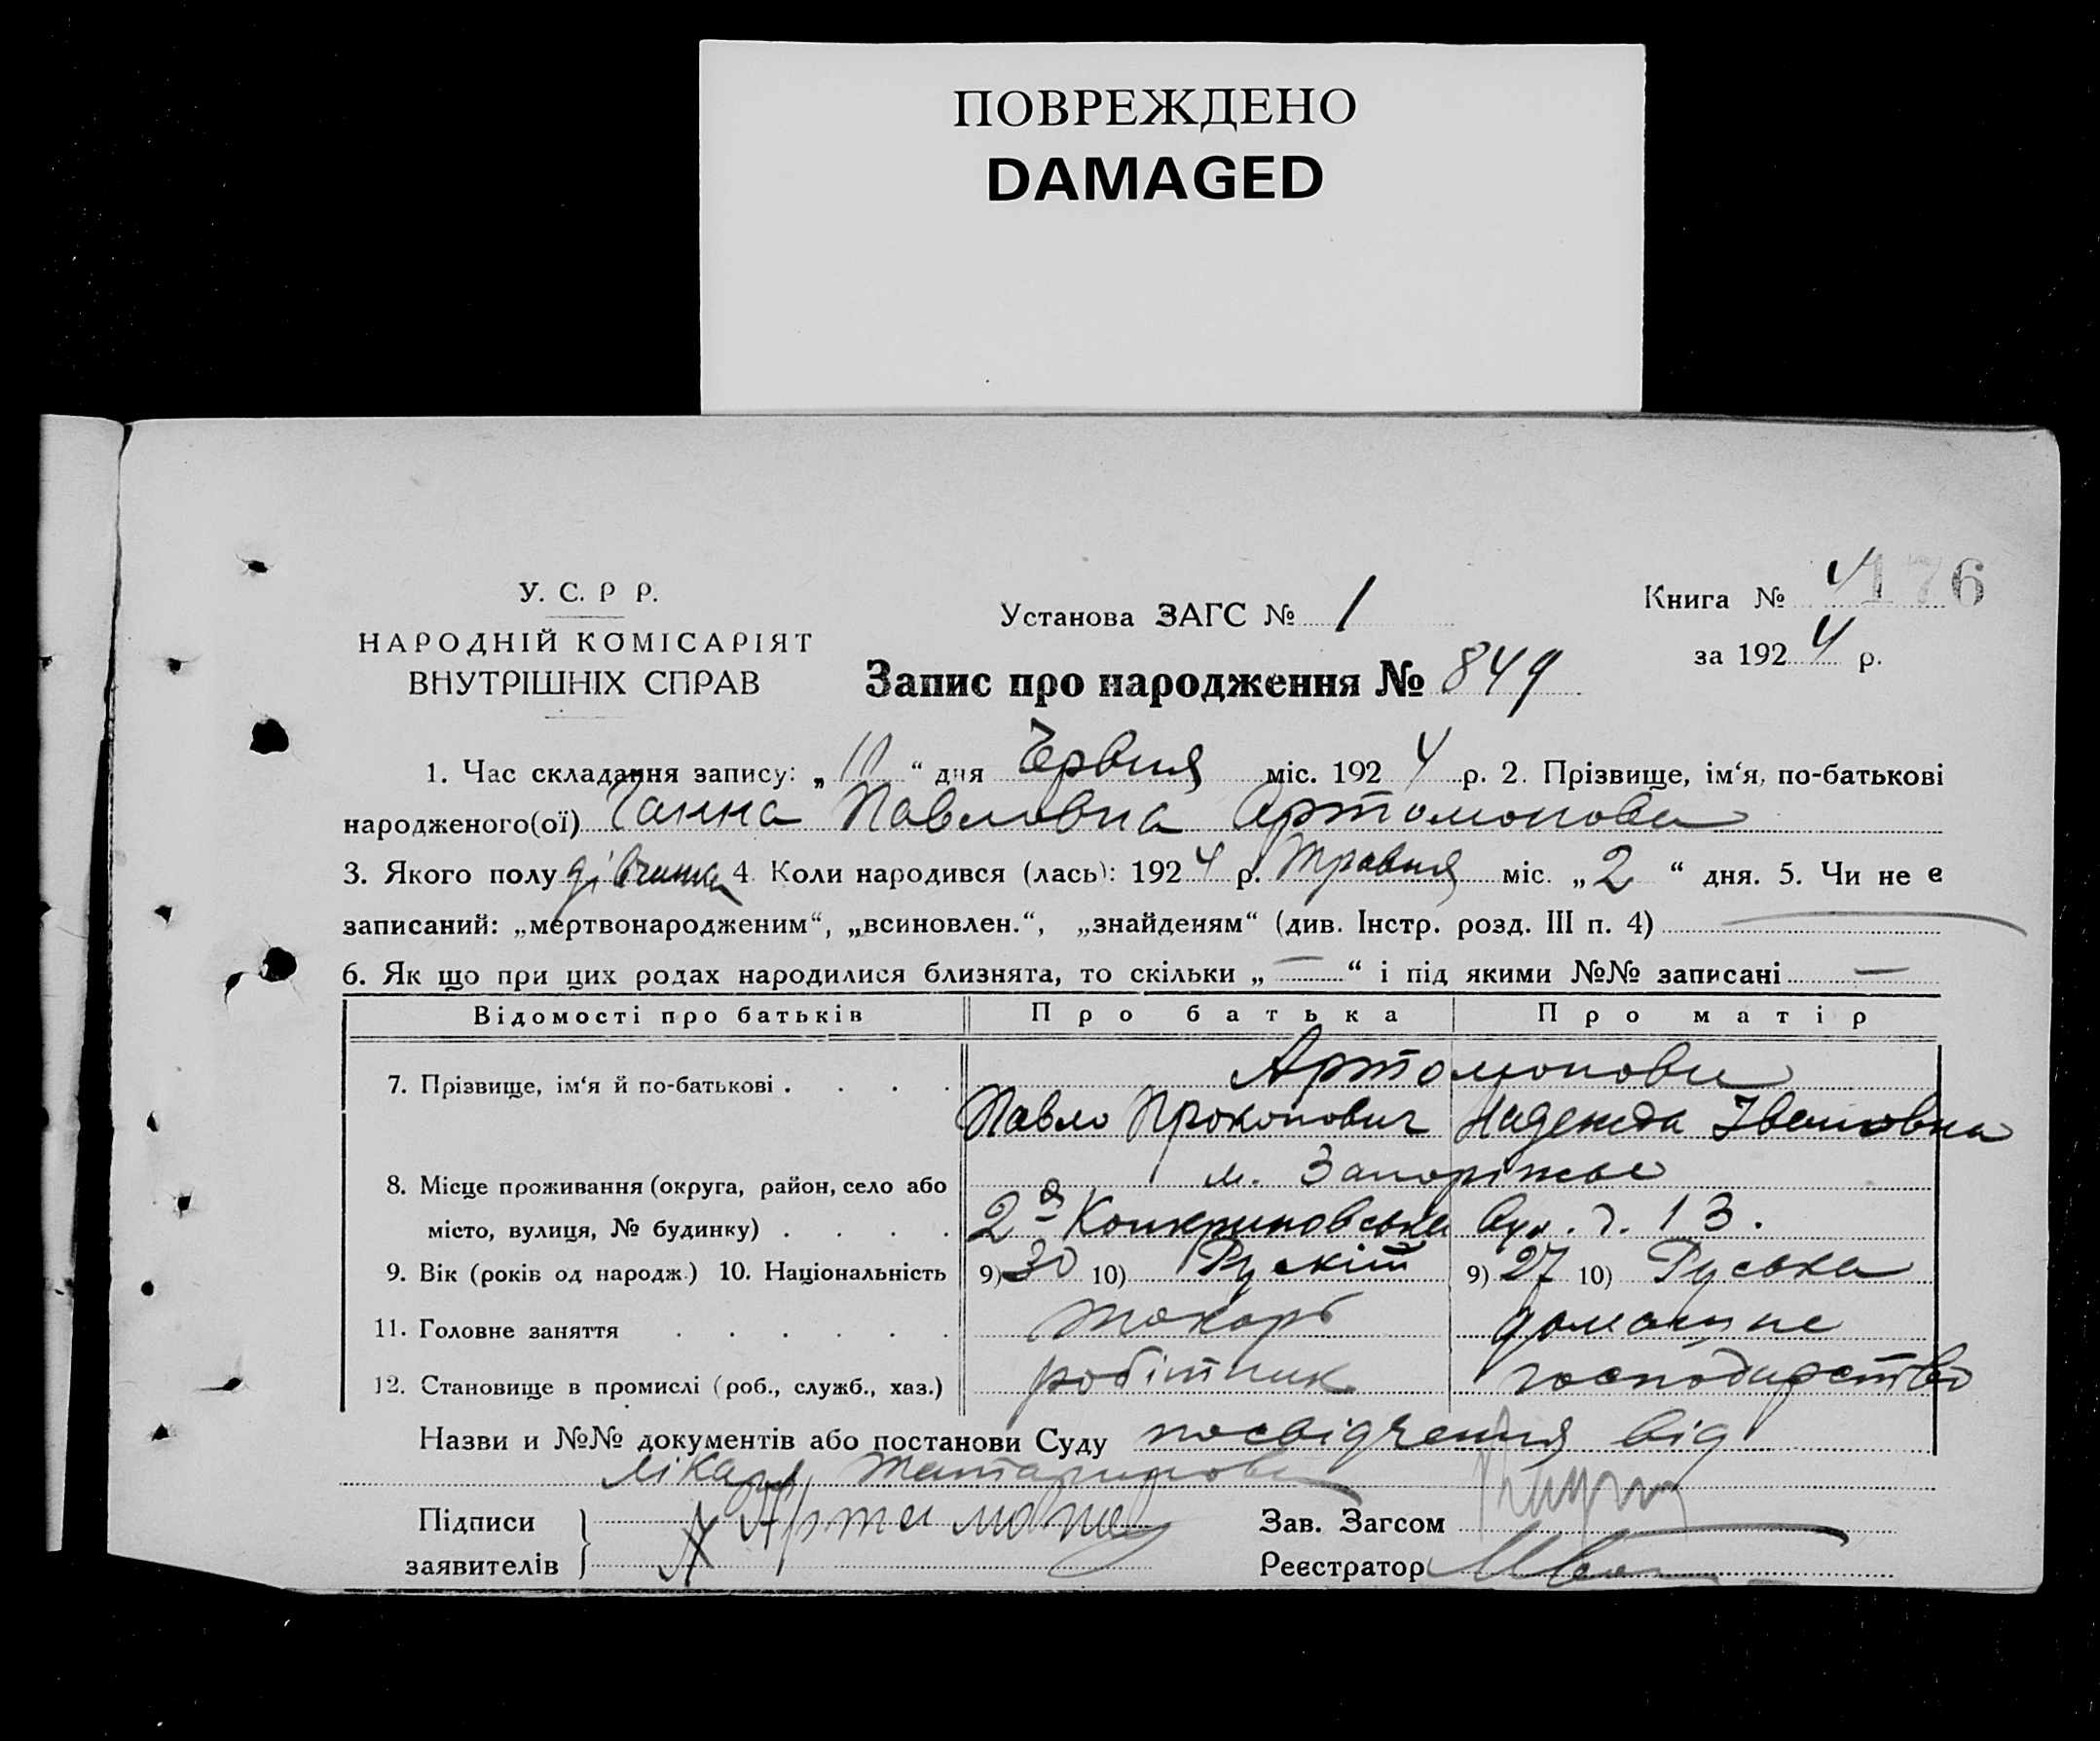 ПОВРЕЖДЕНО
DAMAGED
У. С. Р Р.
НАРОДНІЙ КОМІСАРІЯТ
ВНУТРІШНІХ СПРАВ
Установа ЗАГС № 1
Книга № 4 176
за 1924 р.
Запис про народження № 849
1. Час складання запису: „11“ дня Червня міс. 1924 р. 2. Прізвище, ім‘я, по-батькові
народженого(ої) Ганна Павловна Артомонова
3. Якого полу дівчинка 4. Коли народився (лась): 1924 р. травня міс. „2“ дня. 5. Чи не є
записаний: „мертвонародженим“, „всиновлен.“, „знайденям“ (див. Інстр. розд. III п. 4) —
6. Як що при цих родах народилися близнята, то скільки „—“ і під якими №№ записані —
Відомості про батьків Про батька Про матір
Артомонови
7. Прізвище, ім‘я й по-батькові . . . .
Павло Прокопович Надежда Івановна
м. Запоріжье
8. Місце проживання (округа, район, село або
місто, вулиця, № будинку) . . . . 2а вул. д. 13.
9. Вік (років од народж.) 10. Національність 9) 30 10) Рускій 9) 27 10) Руська
11. Головне заняття . . . . . . токарь домашнє
12. Становище в промислі (роб., служб., хаз.) робітник господарство
Назви и №№ документів або постанови Суду посвідчення від
лікаря Татаринова
Підписи
заявителів } Х Артамонов
Зав. Загсом
Реєстратор